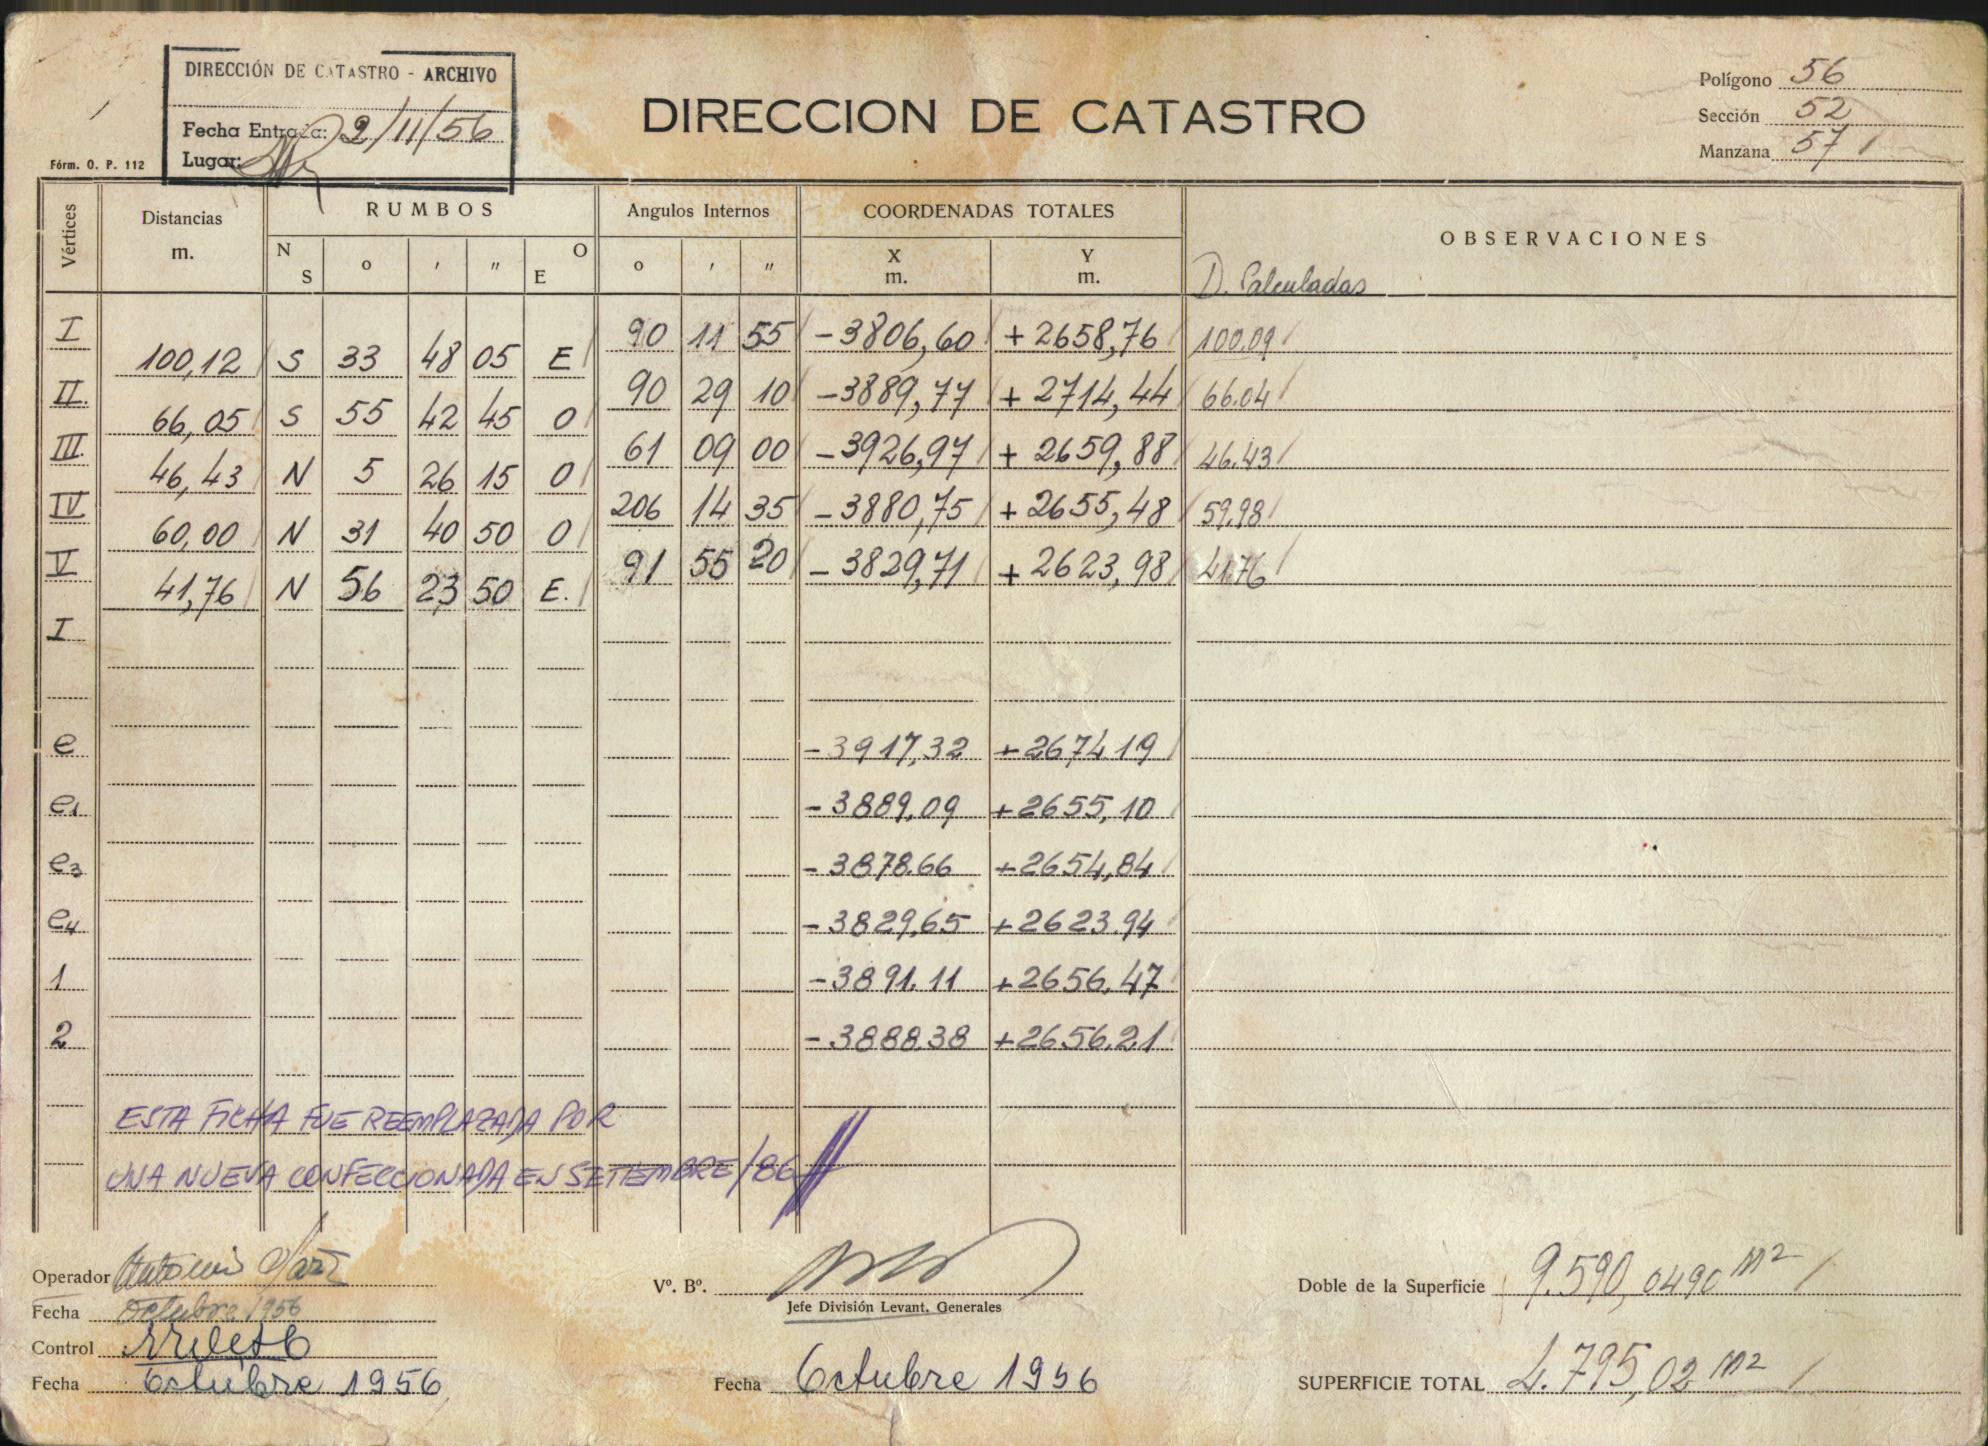 DIRECCIÓN DE CATASTRO - ARCHIVO
Fecha Entrada: 2/11/56
Lugar:
Fórm. O. P. 112
DIRECCION DE CATASTRO
Polígono 56
Sección 52
Manzana 57
Vértices Distancias m. RUMBOS Angulos Internos COORDENADAS TOTALES OBSERVACIONES
N S o ' " E O o ' " X m. Y m.
D. Calculadas
I 90 11 55 -3806,60 +2658,76 100.09
100,12 S 33 48 05 E
II 90 29 10 -3889,77 +2714,44 66.04
66,05 S 55 42 45 O
III 61 09 00 -3926,97 +2659,88 46.43
46,43 N 5 26 15 O
IV 206 14 35 -3880,75 +2655,48 59.98
60,00 N 31 40 50 O
V 91 55 20 -3829,71 +2623,98 41.76
41,76 N 56 23 50 E.
I
e -3917,32 +2674.19
e1 -3889,09 +2655,10
e3 -3878.66 +2654,84
e4 -3829,65 +2623.94
1 -3891.11 +2656.47
2 -3888.38 +2656.21
ESTA FICHA FUE REEMPLAZADA POR
UNA NUEVA CONFECCIONADA EN SETIEMBRE/86
Operador Antonio
Fecha Octubre 1956
Control
Fecha Octubre 1956
Vº. Bº.
Jefe División Levant. Generales
Fecha Octubre 1956
Doble de la Superficie 9.590,0490 m2
SUPERFICIE TOTAL 4.795,02 m2